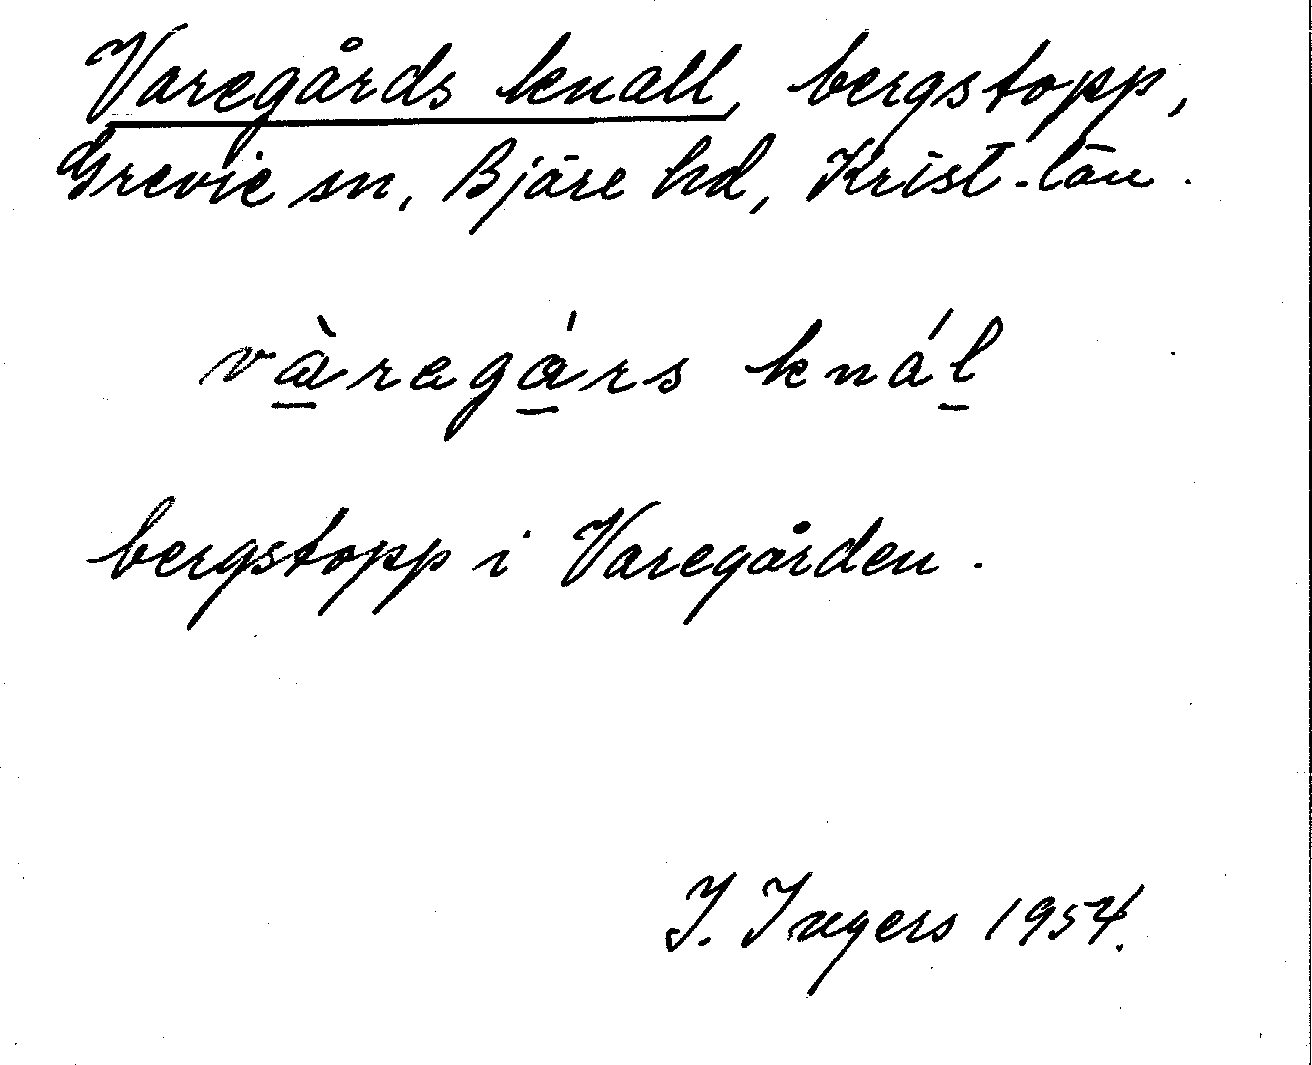 Varegårds knall, bergstopp,
Grevie sn, Bjäre hd, Krist. län.
vàregárs knál
bergstopp i Varegården.
I. Ingers 1954.